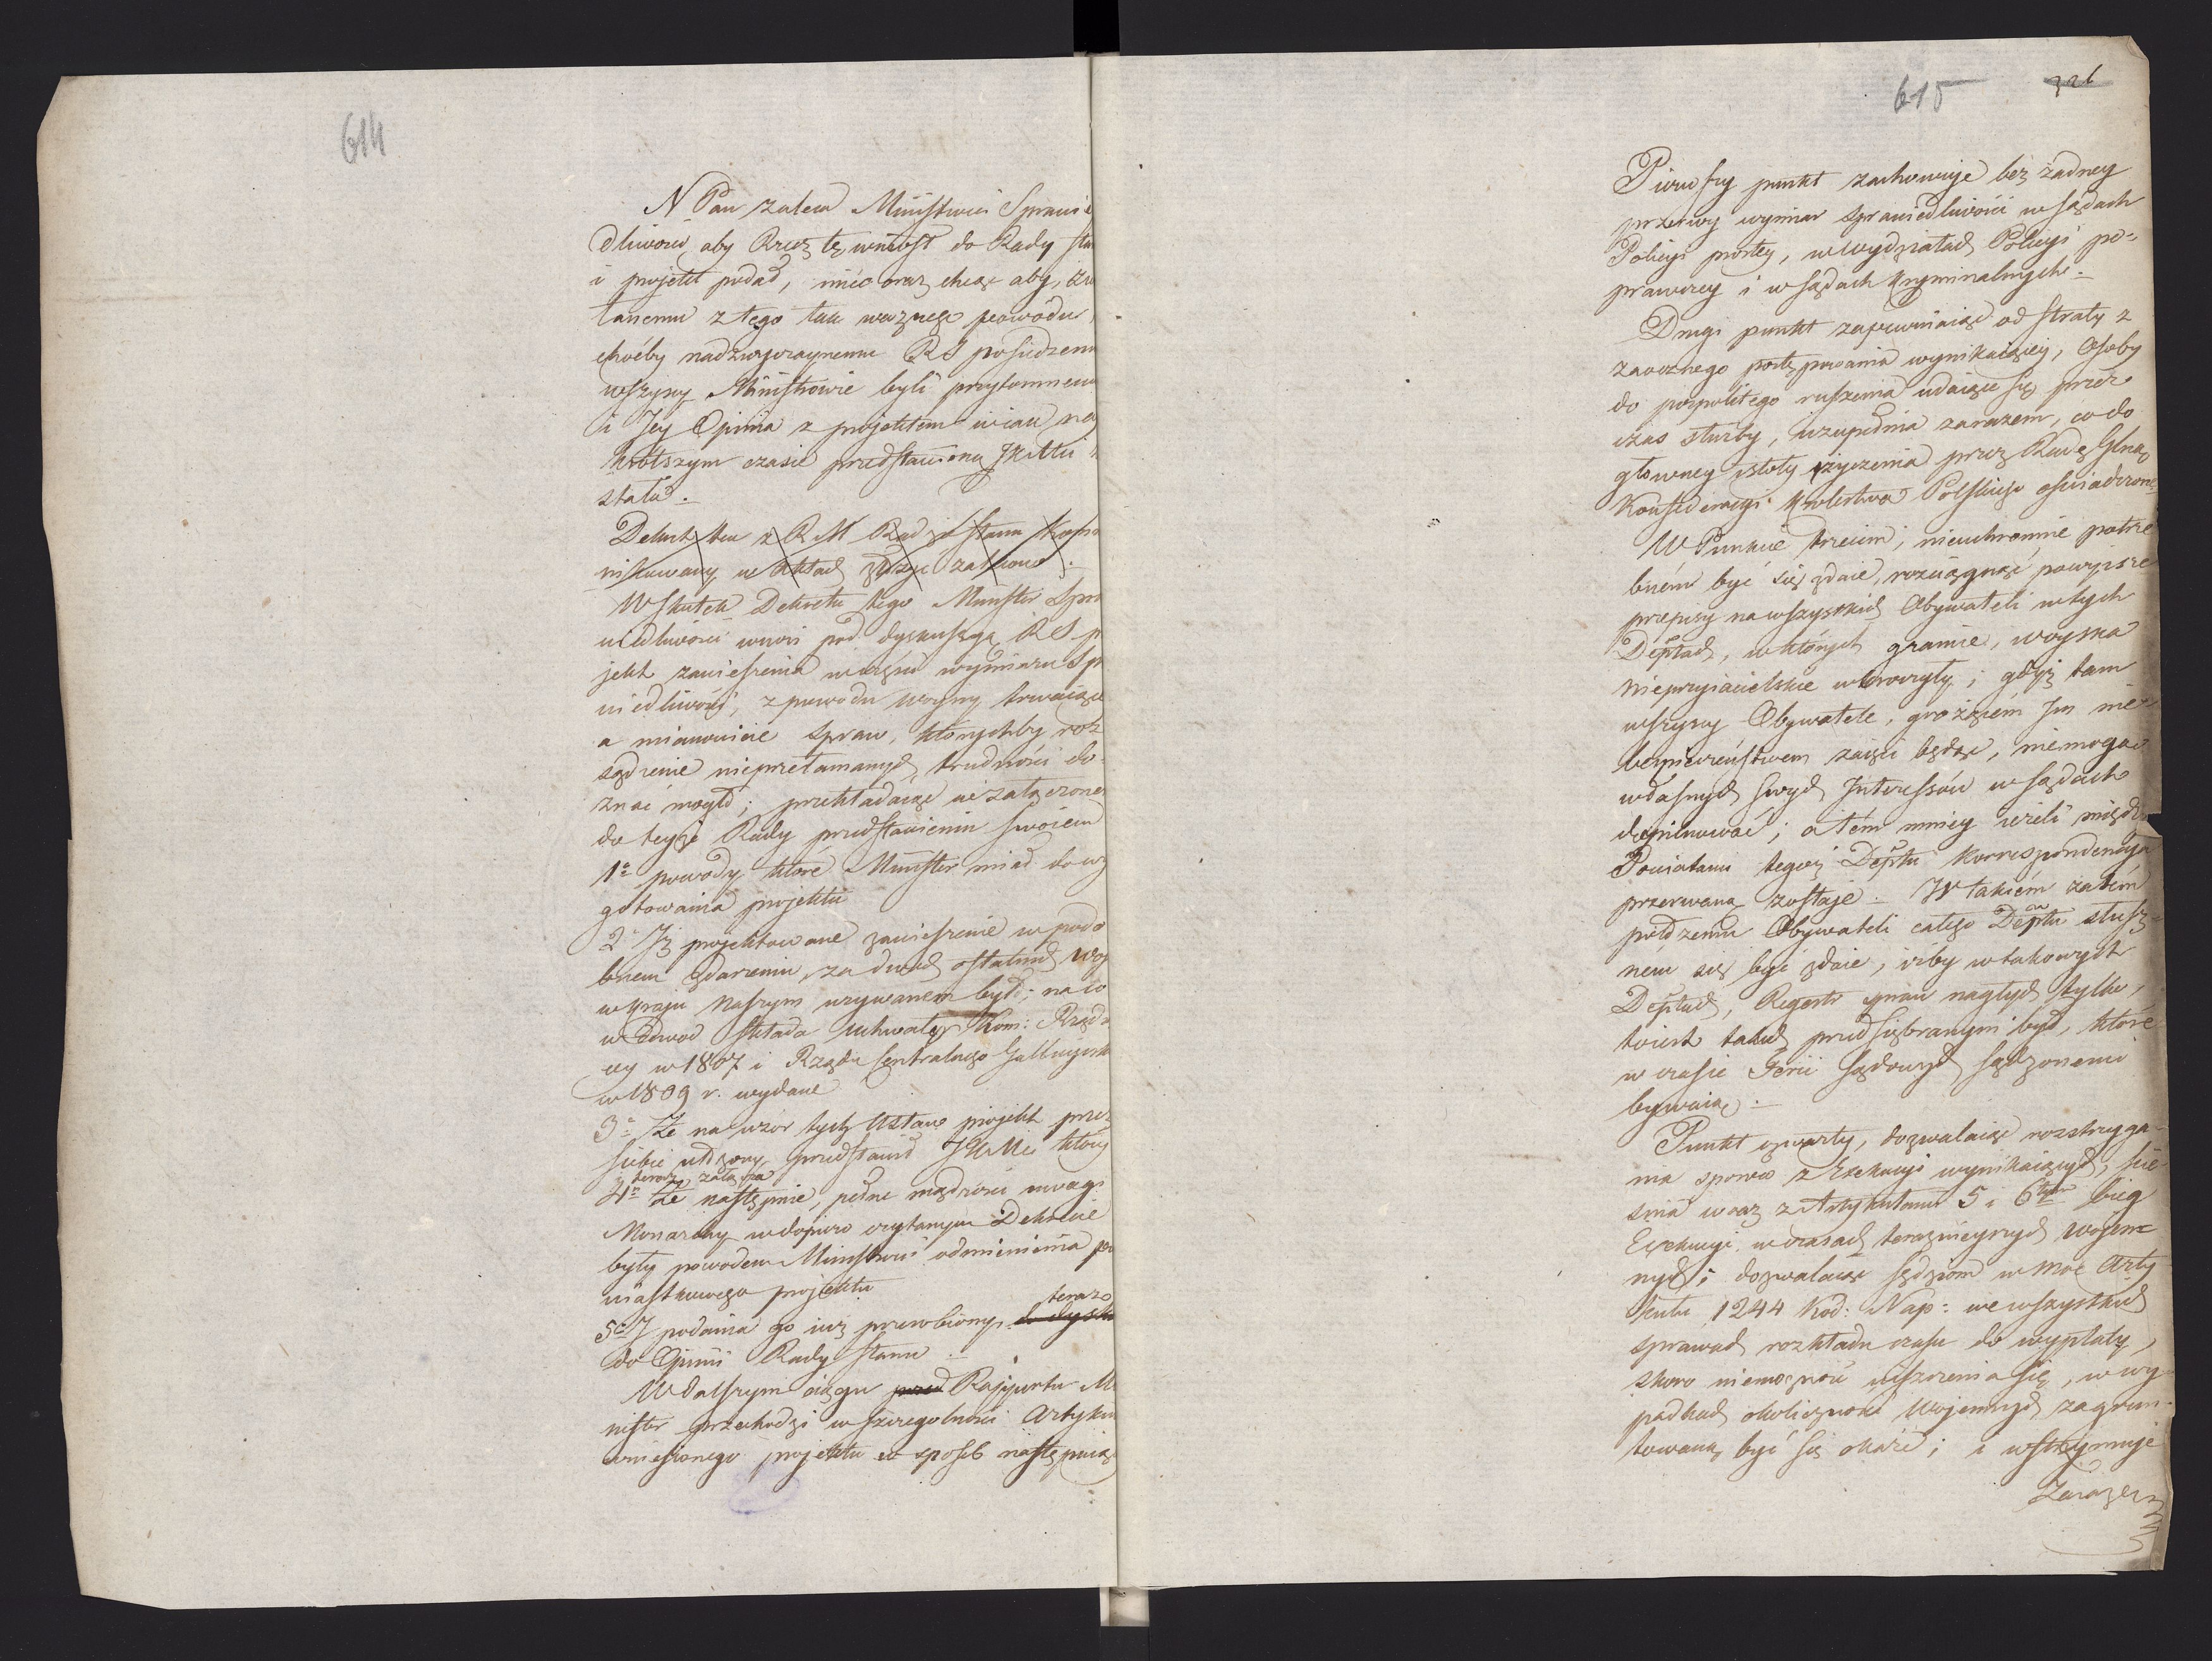 614
N. Pan zaleca Ministrowi Sprawie
dliwości aby Rzecz tę wniósł do Rady Sta
i projekt podał, mieć oraz chcąc aby, zw
łanemu z tego tak ważnego powodu,
choćby nadzwyczaynemu RS posiedzeniu
wszyscy Ministrowie byli przytomnemi
i Jey Opinia z projektem w iak nay
krótszym czasie przedstawioną JKMci
stała.
Dekret ten z RM Radzie Stanu
nikowany w
W skutek Dekretu tego Minister Spra
wiedliwości wnosi pod dyskussyą RS p
jekt zawieszenia w części wymiaru Sp
wiedliwości, z powodu woyny trwaiące
a mianowicie Spraw, którychby roz
sądzenie nieprzełamanych trudności do-
znać mogło; przekładaiąc w załączonem
do teyże Rady przedstawieniu swoiem
1° powody które Minister miał do wy
gotowania projektu
2° Jż projektowane zawieszenie w podo
bnem zdarzeniu, za dwóch ostatnich woy
w kraju naszym używanem było; na co
w dowod składa uchwały Kom: Rządz
cey w 1807 i Rządu Centralnego Gallicyisk
w 1809 r. wydane
3° Że na wzór tych Ustaw projekt prze
siebie ułożony przedstawił JKMci który
teraz załącza
4° Że następnie, pełne mądrości uwagi
Monarchy w dopiero czytanym Dekrecie
były powodem Ministrowi odmienienia po
niastkowego projektu
teraz
5° J podania go iuż przerobionego do dysku
do Opinii Rady Stanu.
W dalszym ciągu Rapportu Mi
nister przechodzi w szczególności Artykuł
wniesionego projektu w sposób następuiąc
615
326
Pierwszy punkt zachowuje bez żadney
przerwy wymiar sprawiedliwości w sądach
Policyi prostey, w wydziałach Policyi po-
prawczey i w sądach kryminalnych.
Drugi punkt zapewniaiąc od straty z
zaocznego postępowania wynikaiącey, Osoby
do pospolitego ruszenia udaiące się przez
czas służby, uzupełnia zarazem, co do
głowney istoty życzenia przez Radę Głną
Konfederacyi Królestwa Polskiego oświadczone.
W Punkcie trzecim, nieuchronnie potrze
bnem być się zdaie, rozciągnąć powyższe
przepisy na wszystkich Obywateli w tych
Deptach, w których granice, woyska
nieprzyiacielskie wkroczyły; gdyż tam
wszyscy Obywatele, grożącem Jm nie-
bezpieczeństwem zaięci będąc, nie mogą
własnych swych Jnteressów w sądach
dopilnować; a tém mniey ieżeli między
Powiatami tegoż Deptu korrespondencya
przerwaną zostaje. W takiém zatém
położeniu Obywateli całego Deptu słusz-
nem się być zdaie, iżby w takowych
Deptach, Regestr spraw nagłych tylko,
toiest takich przedsiębranym był, które
w czasie Ferii sądowych sądzonemi
bywaią.
Punkt czwarty, dozwalaiąc rozstrzyga-
nia sporów z Exekucyi wynikaiących, ście-
śnia wraz z Artykułami 5 i 6tym bieg
Exekucyi w czasach terazнieyszych wojen-
nych; dozwalaiąc sędziom w moc Arty-
kułu 1244 Kod: Nap: we wszystkich
sprawach rozkładu czasu do wypłaty,
skoro niemożność uiszczenia się, w wy-
padkach okoliczności Wojennych zagrun-
towaną być się okaże; i wstrzymuje
Zarazem